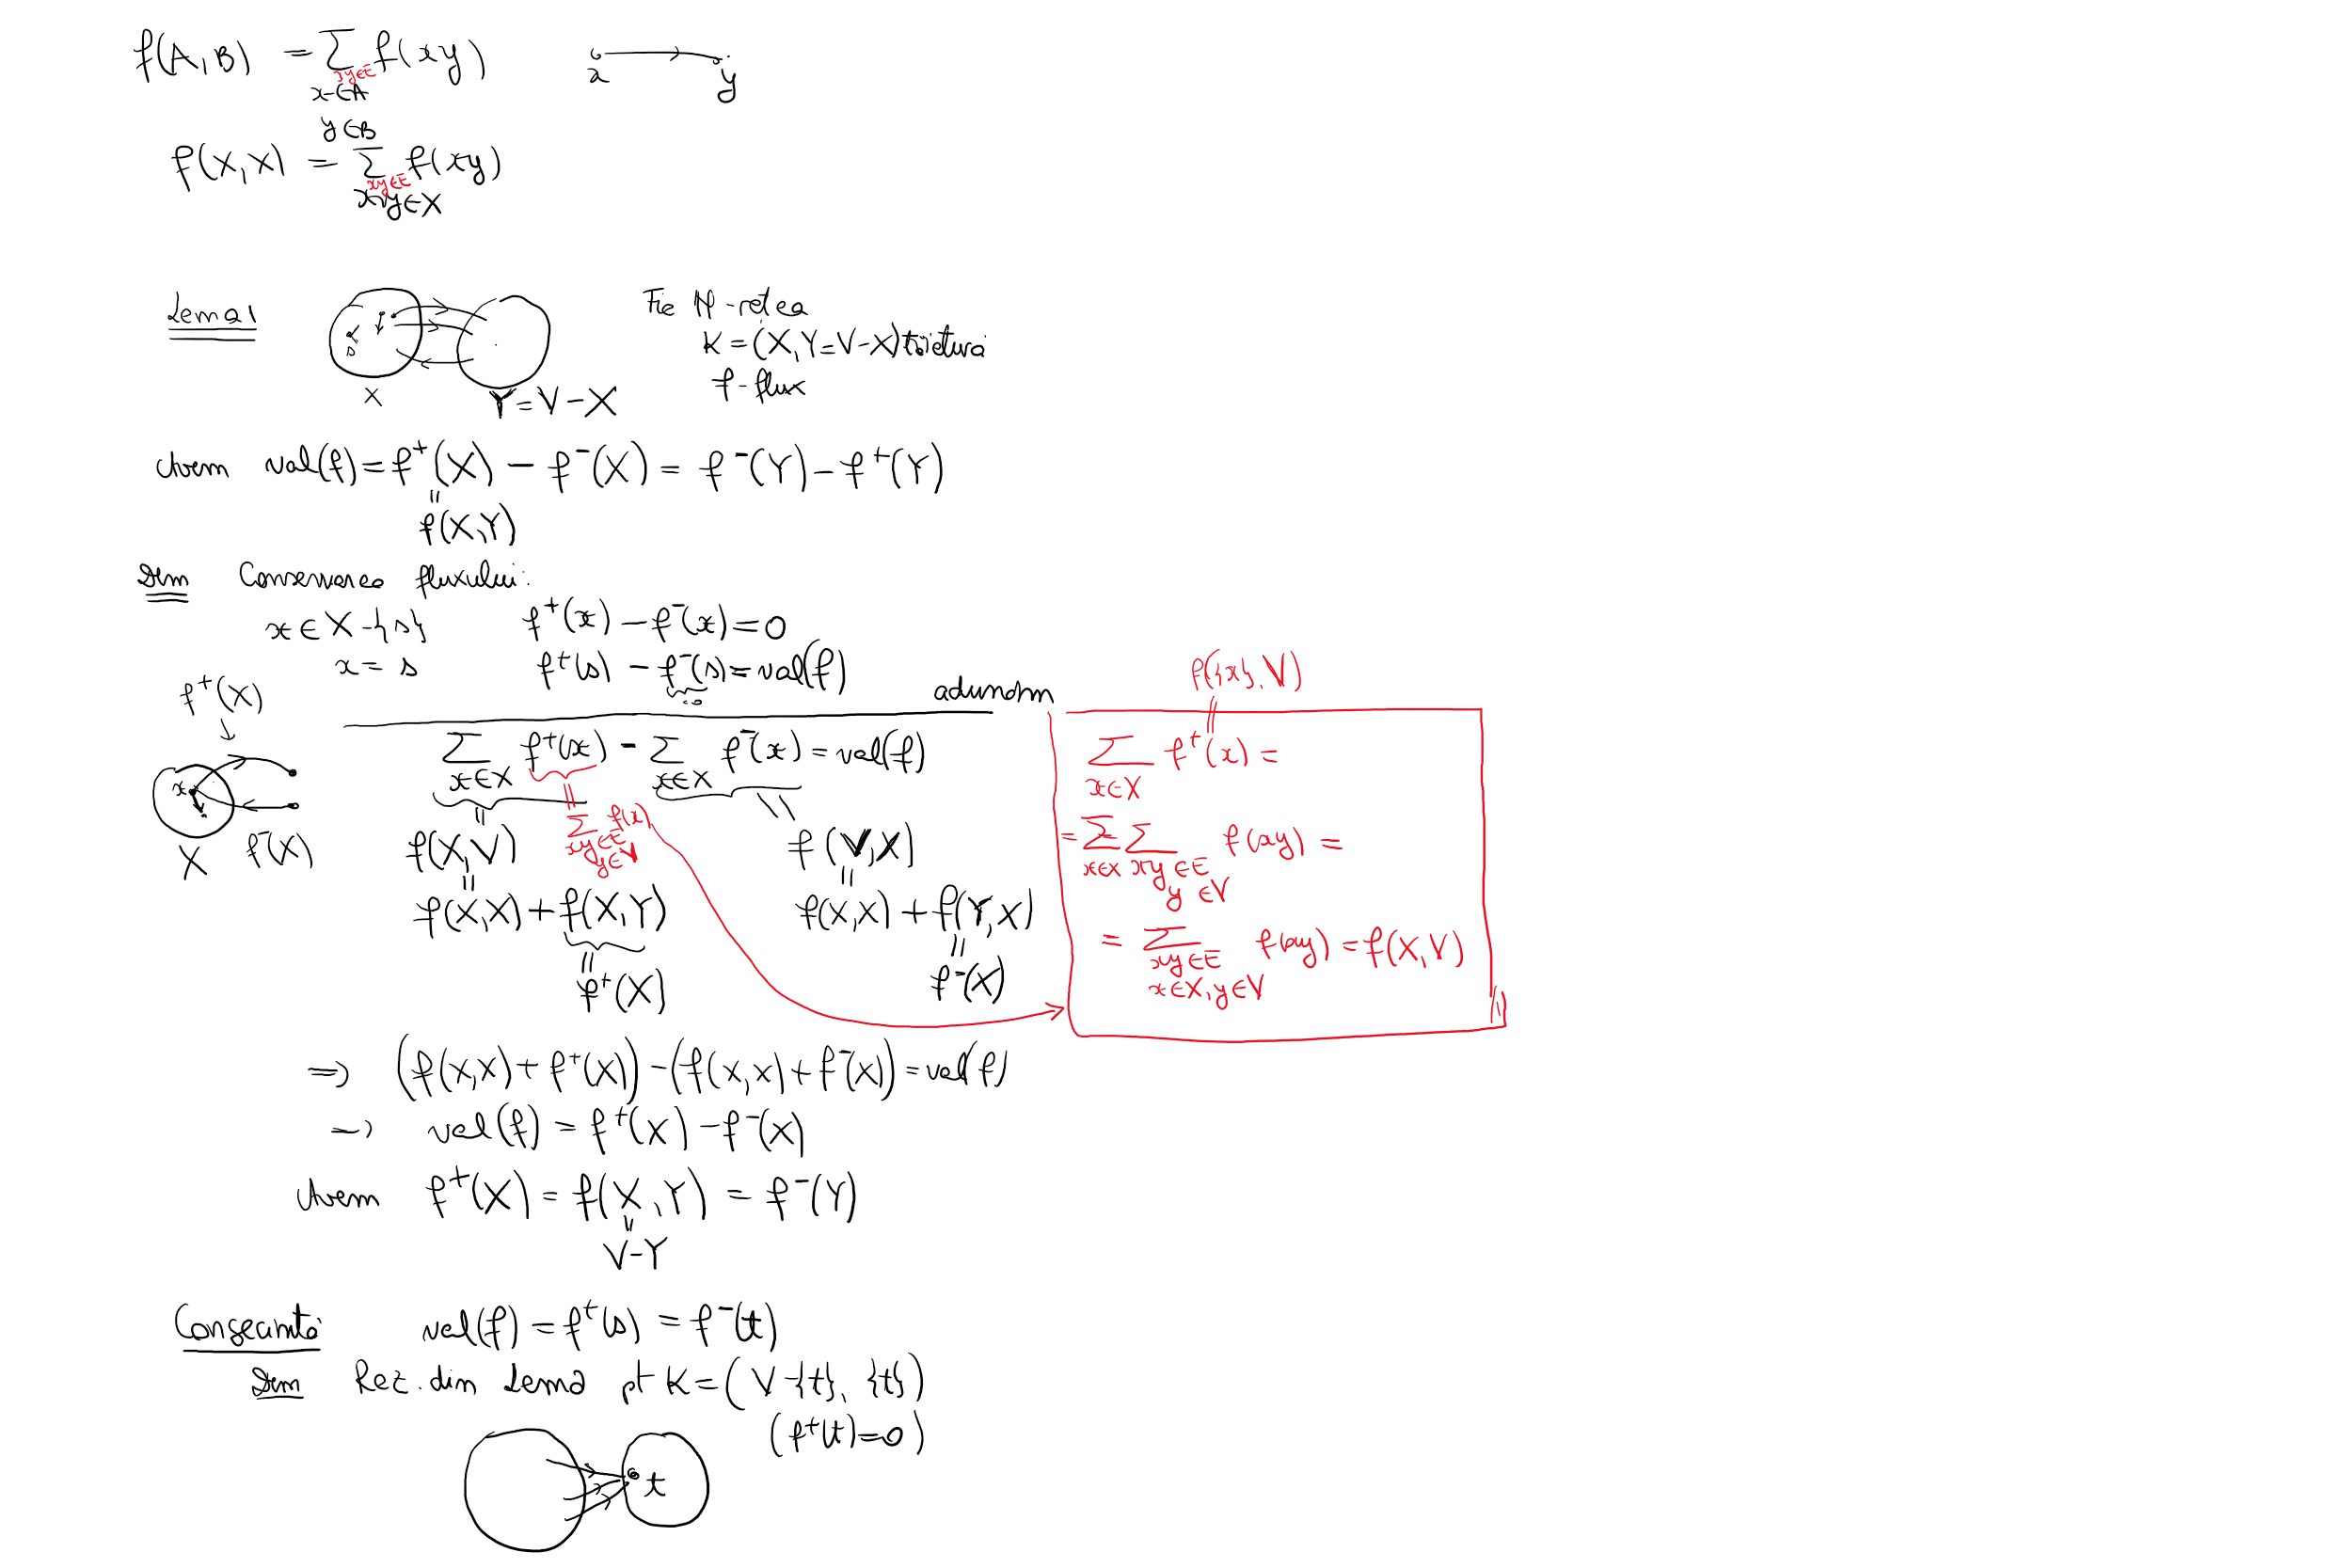 f(A,B) = ∑ f(xy)
xy∈E
x∈A
y∈B
x y
f(X,X) = ∑ f(xy)
xy∈E
x,y∈X
Lema 1
s
X
Y=V-X
Fie N-rețea
K=(X,Y=V-X) tăietură
f-flux
Avem val(f)=f⁺(X) - f⁻(X) = f⁻(Y) - f⁺(Y)
=
f(X,Y)
Dem Conservarea fluxului:
x∈X-{s} f⁺(x) - f⁻(x)=0
x=s f⁺(s) - f⁻(s)=val(f)
=0
adunăm
f⁺(X)
x
X f⁻(X)
∑ f⁺(x) - ∑ f⁻(x) = val(f)
x∈X x∈X
= = =
∑ f(x)
xy∈E
y∈V
f(X,V) f(V,X)
= =
f(X,X)+f(X,Y) f(X,X)+f(Y,X)
= =
f⁺(X) f⁻(X)
f({x},V)
=
∑ f⁺(x) =
x∈X
= ∑ ∑ f(xy) =
x∈X xy∈E
y∈V
= ∑ f(xy) = f(X,V)
xy∈E
x∈X, y∈V
⇒ (f(X,X)+f⁺(X)) - (f(X,X)+f⁻(X)) = val(f)
⇒ val(f) = f⁺(X) - f⁻(X)
Avem f⁺(X) = f(X,Y) = f⁻(Y)
=
V-Y
Consecință val(f) = f⁺(s) = f⁻(t)
Dem Rez. din Lema pt K=(V-{t}, {t})
(f⁺(t)=0)
t